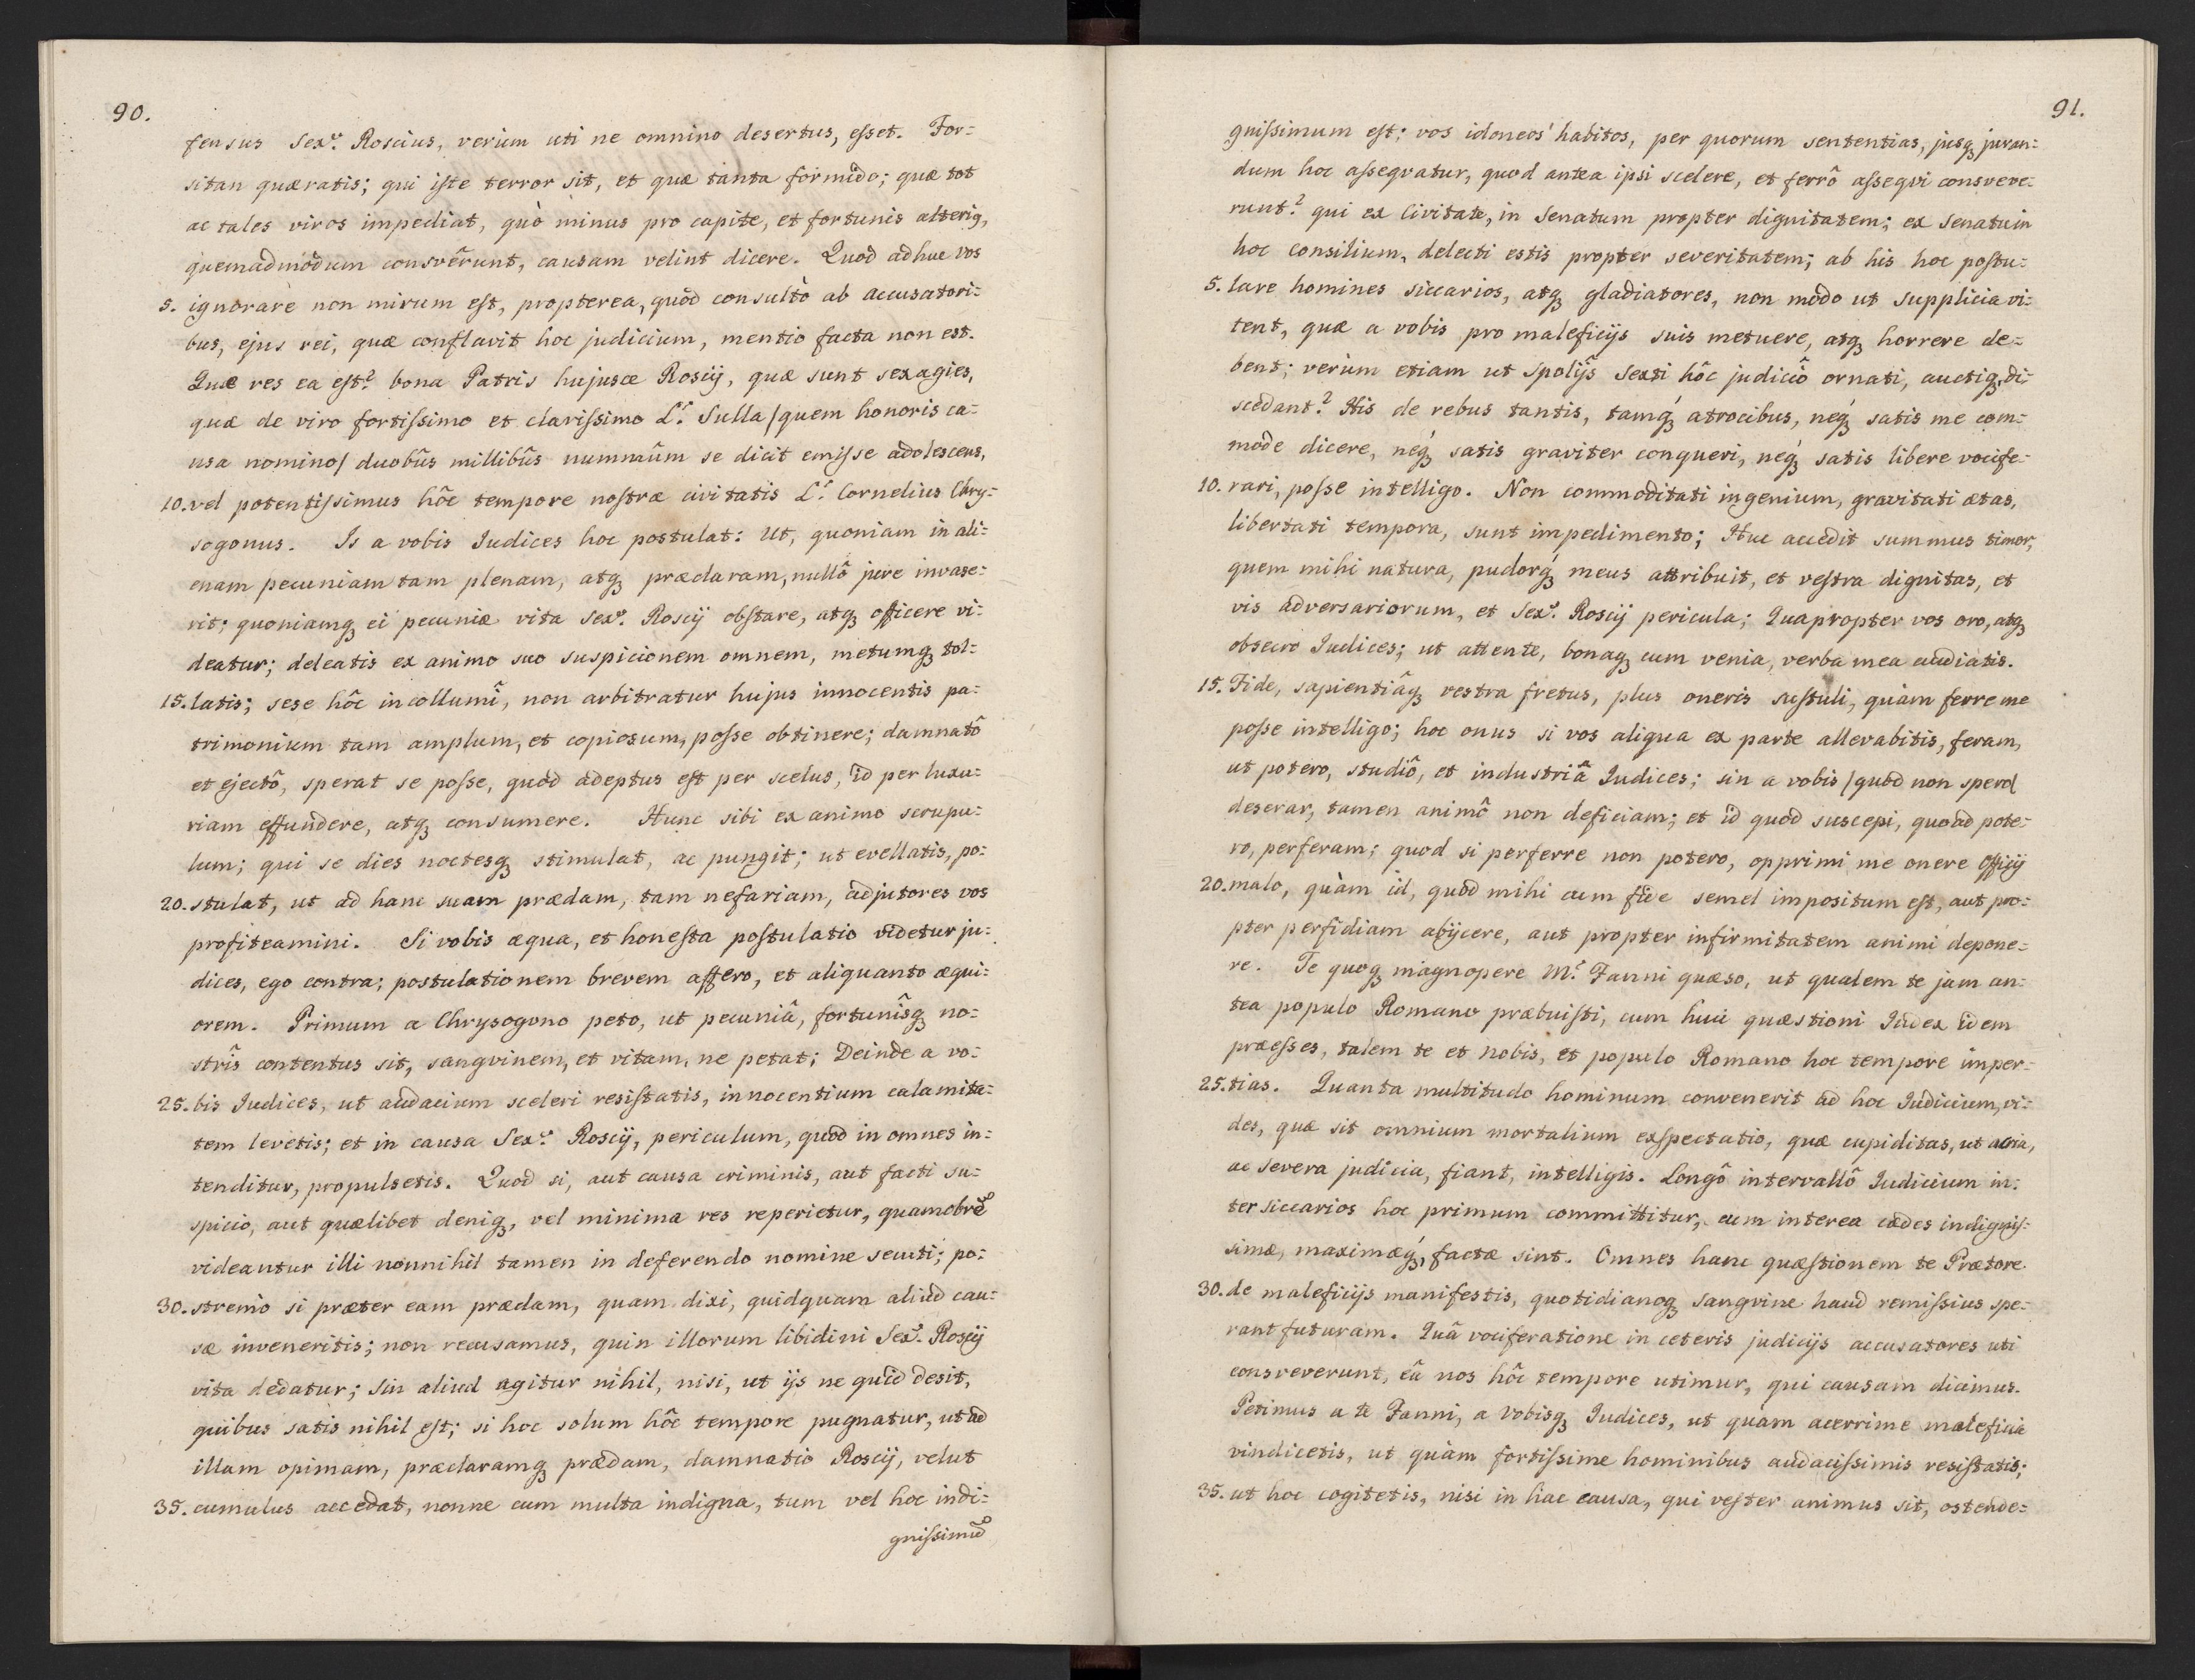 90.
fensus Sexs. Roscius, verùm uti ne omnino desertus, esset. For=
sitan quæratis; qui iste terror sit, et quæ tanta formido; quæ tot
ac tales viros impediat, quò minus pro capite, et fortunis alteriq,
quemadmodum consvêrunt, causam velint dicere. Quod adhuc vos
5. ignorare non mirum est, propterea, quòd consultò ab accusatori=
bus, ejus rei, quæ conflavit hoc judicium, mentio facta non est.
Quæ res ea est? bona Patris hujusce Roscij, quæ sunt sexagies,
quæ de viro fortissimo et clarissimo L. Sulla /quem honoris ca=
usa nomino/ duobûs millibûs nummûm se dicit emisse adolescens,
10. vel potentissimus hôc tempore nostræ civitatis L. Cornelius Chry=
sogonus. Is a vobis Iudices hoc postulat: Ut, quoniam in ali=
enam pecuniam tam plenam, atq præclaram, nullô jure invase=
rit; quoniamq ei pecuniæ vita Sexs. Roscij obstare, atq officere vi=
deatur; deleatis ex animo suo suspicionem omnem, metumq tol=
15. latis; sese hôc incollumî, non arbitratur hujus innocentis pa=
trimonium tam amplum, et copiosum, posse obtinere; damnatô
et ejectô, sperat se posse, quod adeptus est per scelus, id per luxu=
riam effundere, atq consumere. Hunc sibi ex animo scrupu=
lum; qui se dies noctesq stimulat, ac pungit; ut evellatis, po=
20. stulat, ut ad hanc suam prædam, tam nefariam, adjutores vos
profiteamini. Si vobis æqua, et honesta postulatio videtur ju=
dices, ego contra; postulationem brevem affero, et aliquanto æqui=
orem. Primum a Chrysogono peto, ut pecuniâ, fortunîsq no=
strîs contentus sit, sangvinem, et vitam, ne petat; Deinde a vo=
25. bis Iudices, ut audacium sceleri resistatis, innocentium calamita=
tem levetis; et in causa Sexs. Roscij, periculum, quod in omnes in=
tenditur, propulsetis. Quod si, aut causa criminis, aut facti su=
spicio, aut quælibet deniq, vel minima res reperietur, quamobrē
videantur illi nonnihil tamen in deferendo nomine secuti; po=
30. stremò si præter eam prædam, quam dixi, quidquam aliud cau=
sæ inveneritis; non recusamus, quin illorum libidini Sexs. Roscij
vita dedatur; Sin aliud agitur nihil, nisi, ut ijs ne quid desit,
quibus satis nihil est; si hoc solum hôc tempore pugnatur, ut ad
illam opimam, præclaramq prædam, damnatio Roscij, velut
35. cumulus accedat, nonne cum multa indigna, tum vel hoc indi=
gnissimū
91.
gnissimum est; vos idoneos habitos, per quorum sententias, jusq juran=
dum hoc assequatur, quod antea ipsi scelere, et ferrô assequi consveve=
runt? qui ex Civitate, in Senatum propter dignitatem; ex Senatu in
hoc consilium, delecti estis propter severitatem; ab his hoc postu=
5. lare homines siccarios, atq gladiatores, non modo ut supplicia vi=
tent, quæ a vobis pro maleficijs suis metuere, atq horrere de=
bent; verùm etiam ut spolijs Sexti hôc judiciô ornati, auctiq, di=
scedant? His de rebus tantis, tamq́ atrocibus, neq́ satis me com=
mode dicere, neq́ satis graviter conqueri, neq́ satis libere vocife=
10. rari, posse intelligo. Non commoditati ingenium, gravitati ætas,
libertati tempora, sunt impedimento; Huc accedit summus timor,
quem mihi natura, pudorq́ meus attribuit, et vestra dignitas, et
vis adversariorum, et Sexs. Roscij pericula; Quapropter vos oro, atq
obsecro Iudices; ut attente, bonaq cum venia, verba mea audiatis.
15. Fide, sapientiâq vestra fretus, plus oneris sustuli, quàm ferre me
posse intelligo; hoc onus si vos aliqua ex parte allevabitis, feram,
ut potero, studiô, et industriâ Iudices; sin a vobis /quod non spero/
deserar, tamen animô non deficiam; et id quod suscepi, quoad pote=
ro, perferam; quod si perferre non potero, opprimi me onere officij
20. malo, quàm id, quod mihi cum fide semel impositum est, aut pro=
pter perfidiam abijcere, aut propter infirmitatem animi depone=
re. Te quoq magnopere M. Fanni quæso, ut qualem te jam an=
tea populo Romano præbuisti, cum huic quæstioni Iudex idem
præesses, talem te et nobis, et populo Romano hoc tempore imper=
25. tias. Quanta multitudo hominum convenerit ad hoc Iudicium, vi=
des, quæ sit omnium mortalium exspectatio, quæ cupiditas, ut acria,
ac severa judicia, fiant, intelligis. Longô intervallô Iudicium in=
ter siccarios hoc primum committitur, cum interea cædes indignis=
simæ, maximæq́, factæ sint. Omnes hanc quæstionem te Prætore
30. de maleficijs manifestis, quotidianoq sangvine haud remissius spe=
rant futuram. Quâ vociferatione in ceteris judicijs accusatores uti
consveverunt, eâ nos hôc tempore utimur, qui causam dicimus.
Petimus a te Fanni, a vobisq Iudices, ut quàm acerrime maleficia
vindicetis, ut quàm fortissime hominibus audacissimis resistatis;
35. ut hoc cogitetis, nisi in hac causa, qui vester animus sit, ostende=